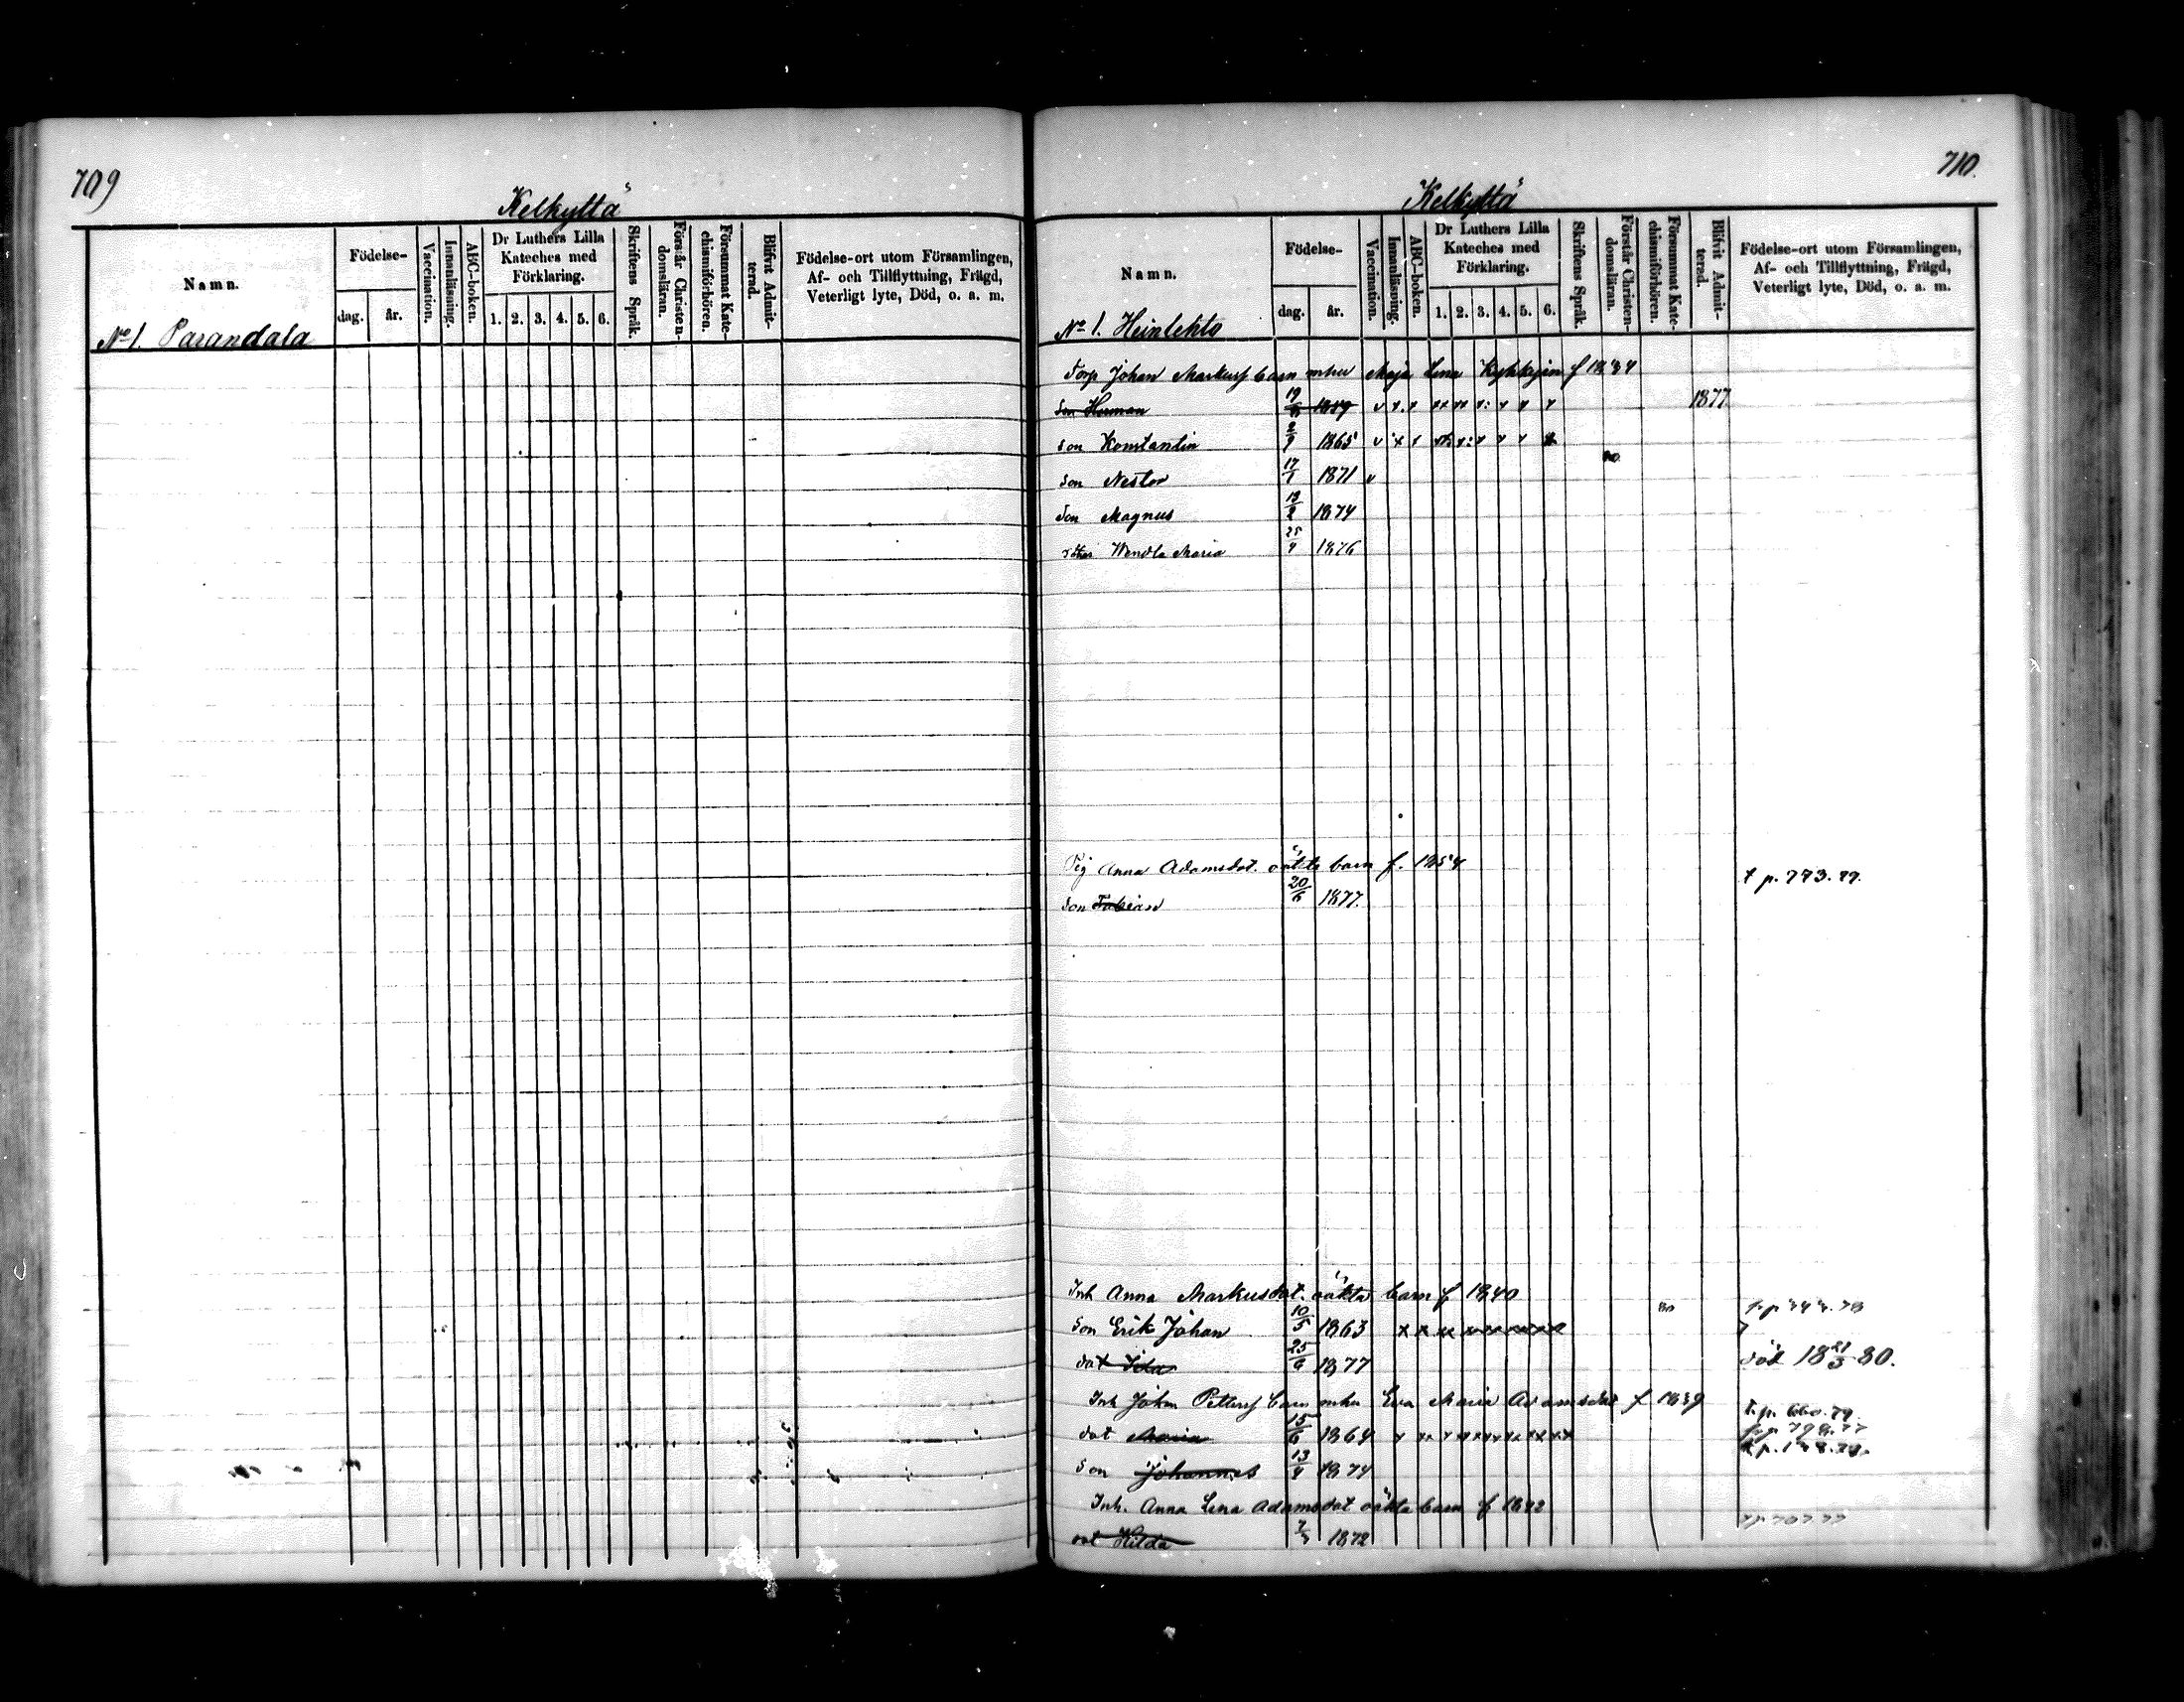 709
Kelkyttä
Namn.
Födelse-
dag.
år.
Vaccination.
Innanläsning.
ABC-boken.
Dr Luthers Lilla
Kateches med
Förklaring.
1. 2. 3. 4. 5. 6.
Skriftens Språk.
Förstår Christen-
domsläran.
Försummat Kate-
chismiförhören.
Blifvit Admit-
terad.
Födelse-ort utom Församlingen,
Af- och Tillflyttning, Frägd,
Veterligt lyte, Död, o. a. m.
No 1. Parandala
710.
Kelkyttä
Namn.
Födelse-
dag.
år.
Vaccination.
Innanläsning.
ABC-boken.
Dr Luthers Lilla
Kateches med
Förklaring.
1. 2. 3. 4. 5. 6.
Skriftens Språk.
Förstår Christen-
domsläran.
Försummat Kate-
chismiförhören.
Blifvit Admit-
terad.
Födelse-ort utom Församlingen,
Af- och Tillflyttning, Frägd,
Veterligt lyte, Död, o. a. m.
No 1. Heinlehto
Torp Johan Markuss barn mhu Maja Lena f 1834
son Herman 1859 1877
son Konstantin 2/9 1865
son Nestor 17/1 1871
son Magnus 19/2 1874
Wendla Maria 25/4 1876
Pig Anna Adamsdot. oäkta barn f. 1854
son Fabian 20/6 1877. t p. 773. 79.
Inh Anna Markusdot. oäkta barn f 1840
son Erik Johan 10/5 1863 x x xx
dot Ida 25/6 1877 död 18 21/3 80.
Inh Johan Petterss barn mhu Eva Maria Adamsdot f 1839
dot Maria 15/6 1864 t.p. 660. 79.
son Johannes 13/4 1874
Inh. Anna Lena Adamsdot oäkta barn f 1842
dot Hilda 1872